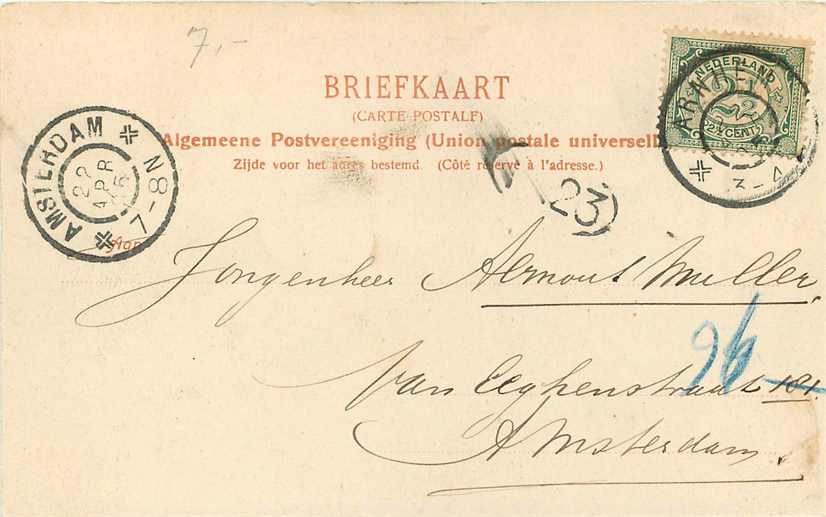 7,-
BRIEFKAART
(CARTE POSTALE)
Algemeene Postvereeniging (Union postale universelle)
Zijde voor het adres bestemd. (Côté réservé à l'adresse.)
AMSTERDAM
22
APR
05
7-8N
NEDERLAND
2½
2½ CENT
ARNHEM
3-4
23)
Aan
Jongenheer Aernout Muller,
96
Van Eeghenstraat 181.
Amsterdam.